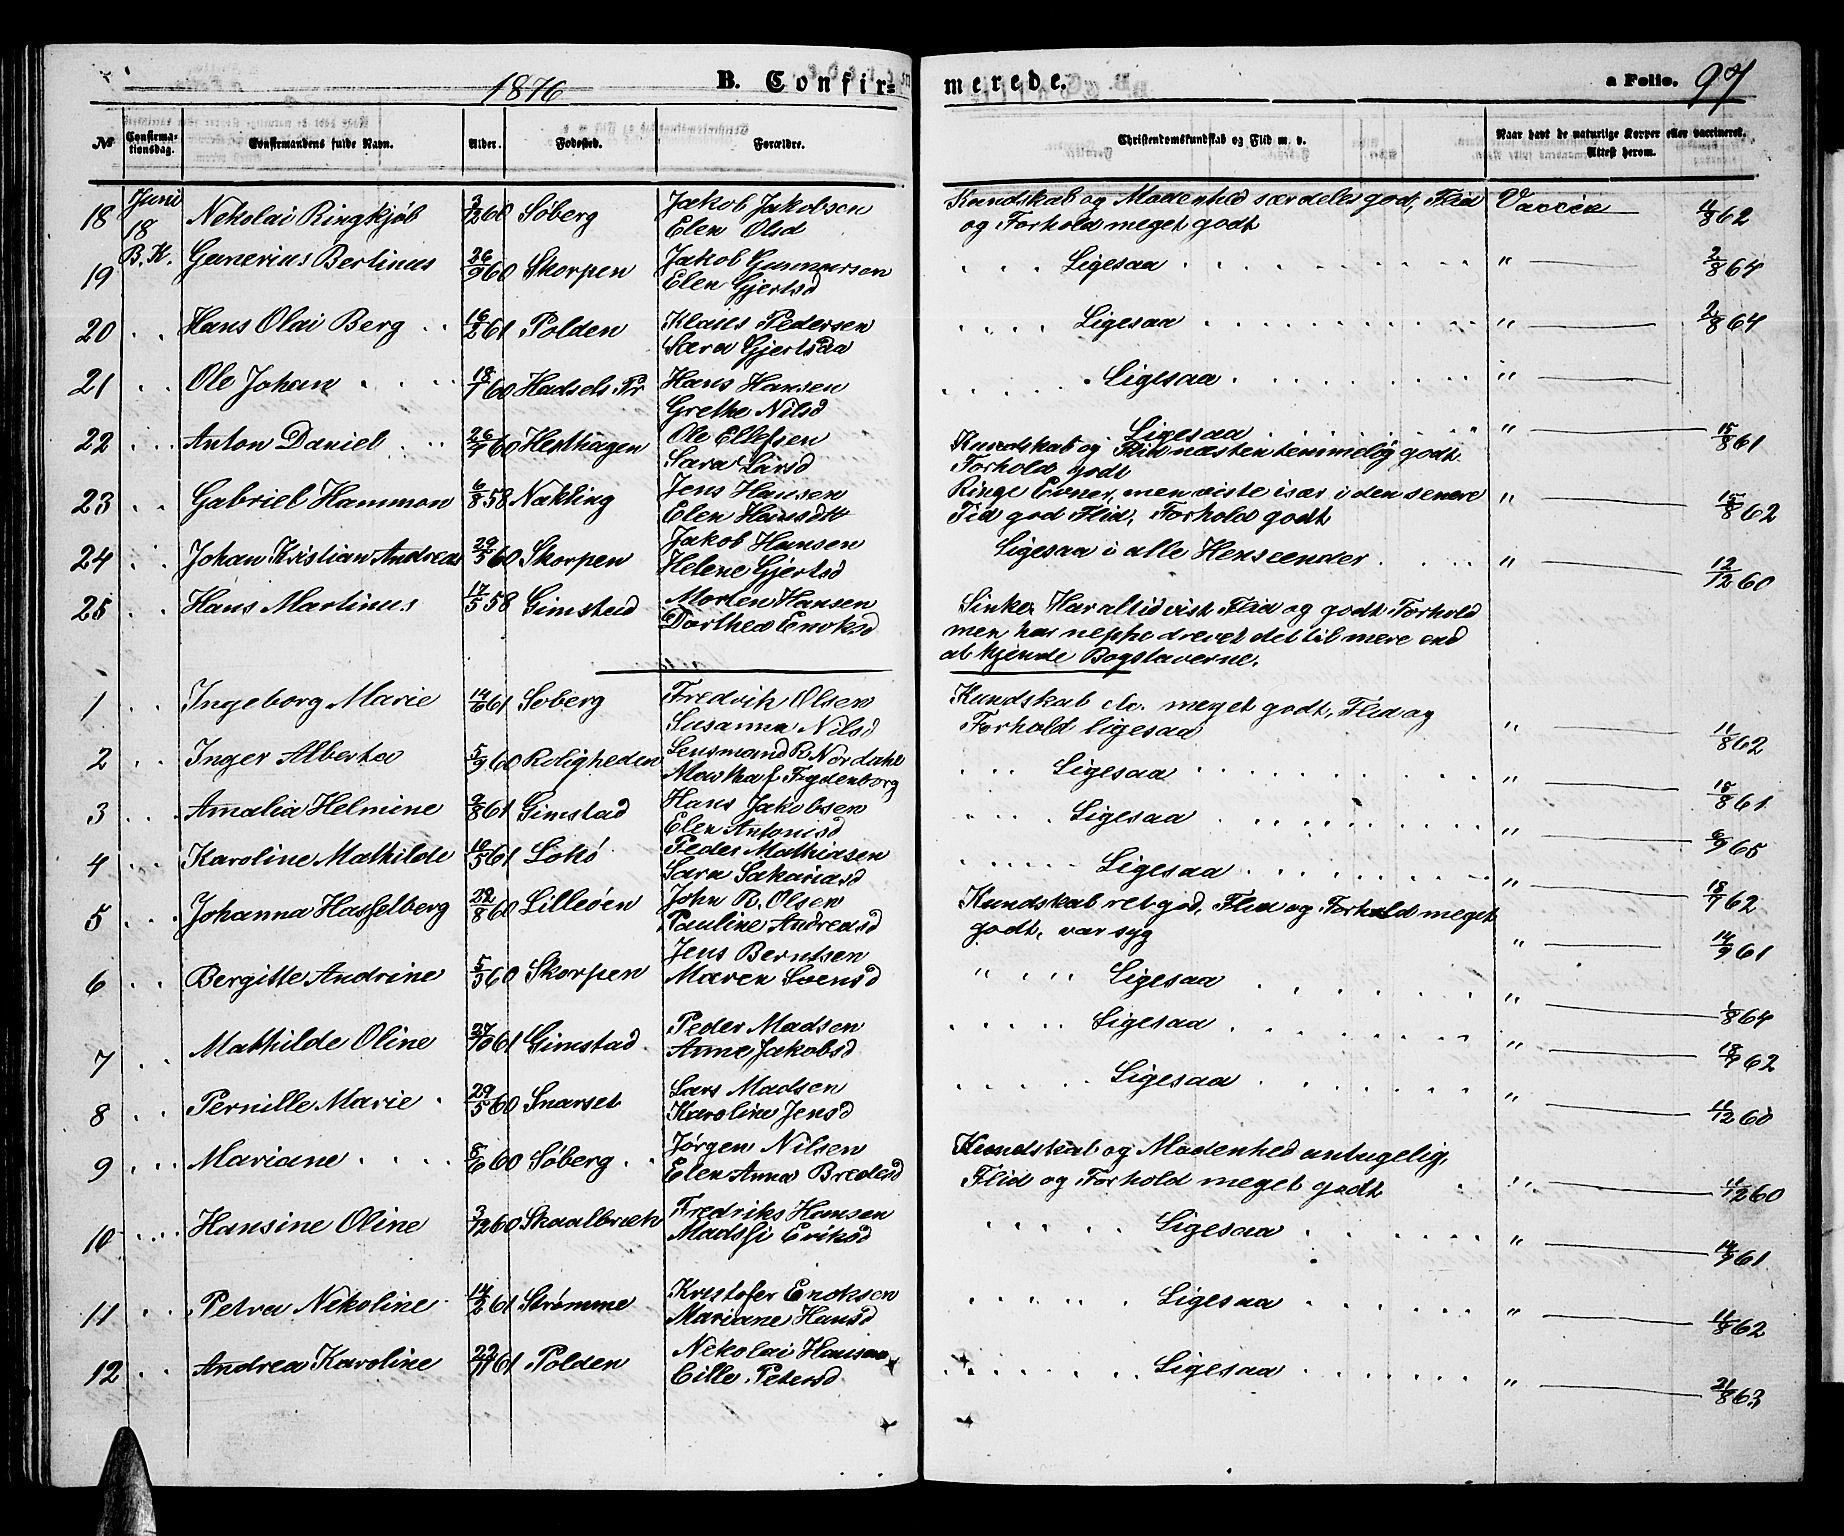 1876 B. Confir= merede. a Folio. 97
№ Confirma-tionsdag. Confirmandens fulde Navn. Alder. Fødested. Forældre. Christendomskundskab og Flid m. v. Naar havt de naturlige Kopper eller vaccineret. Attest herom.
18 Juni 18 Nekolai Ringkjøb 3/12 60 Søberg Jakob Jakobsen Kundskab og Modenhed særdeles god, Flid Vaccin 11/8 62
Elen Olsd og Forhold meget godt
19 B.K. Gunerius Bertinus 26/9 60 Skorpen Jakob Gunnarsen Ligesaa " 2/8 64
Elen Gjertsd
20 Hans Olai Berg 16/2 61 Polden Klaus Pedersen Ligesaa " 2/8 64
Sara Gjertsda
21 Ole Johan 18/7 60 Hadsels Pr Hans Hansen Ligesaa "
Grethe Nilsd
22 Anton Daniel 26/7 60 Hesthagen Ole Ellefsen Ligesaa " 15/8 61
Sara Larsd Kundskab og Flid næsten temmelig godt
Forhold godt
23 Gabriel Hammon 6/8 58 Nøkling Jens Hansen Ringe Evner, men viste især i den senere " 15/8 62
Elen Hansdtt Tid god Flid, Forhold godt
24 Johan Kristian Andreas 29/5 60 Skorpen Jakob Hansen Ligesaa i alle Henseender " 12/12 60
Helene Gjertsd
25 Hans Martinus 17/5 58 Gimstad Morten Hansen Sinke. Har altid vist Flid og godt Forhold
Dorthea Enoksd men har neppe drevet det til mere end
at kjende Bogstaverne.
1 Ingeborg Marie 14/6 61 Søberg Fredrik Olsen Kundskab etc. meget godt, Flid og " 11/8 62
Susanna Nilsd Forhold ligesaa
2 Inger Alberta 5/9 60 Roligheden Lensmand R. Nordahl Ligesaa " 15/8 61
Martha f. Fygdenborg
3 Amalia Helmine 9/8 61 Gimstad Hans Jakobsen Ligesaa " 6/9 65
Elen Antonisd
4 Karoline Mathilde 10/5 61 Lokø Peder Mathiasen Ligesaa " 18/7 62
Sara Sakariasd
5 Johanna Hasselberg 22/8 60 Lilleøen John B. Olsen Kundskab ret god, Flid og Forhold meget " 14/9 61
Pauline Andreasd godt, var syg
6 Bergitte Andrine 5/3 60 Skorpen Jens Berntsen Ligesaa " 1/8 64
Maren Svensd
7 Mathilde Oline 27/10 61 Gimstad Peder Madsen Ligesaa " 18/7 62
Anne Jakobsd
8 Pernille Marie 29/5 60 Snarset Lars Madsen Ligesaa " 11/12 60
Karoline Jensd
9 Mariane 8/6 60 Søberg Jørgen Nilsen Kundskab og Modenhed antagelig, " 11/12 60
Elen Anna Bredesd Flid og Forhold meget godt
10 Hansine Oline 3/12 60 Skaalbrek Fredriks Hansen Ligesaa " 14/9 61
Madssi Eriksd
11 Petra Nekoline 14/2 61 Strømme Kristofer Enoksen Ligesaa " 11/8 62
Mariane Hansd
12 Andrea Karoline 22/11 61 Polden Nekolai Hansen Ligesaa " 21/8 63
Cille Petersd